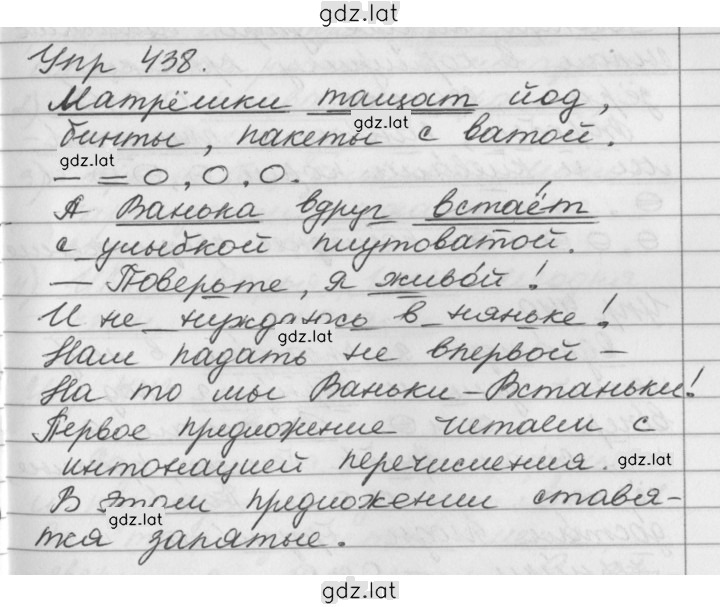 gdz.lat
Упр 438.
Матрёшки тащат йод,
gdz.lat
бинты, пакеты с ватой.
gdz.lat
— = O, O, O.
А Ванька вдруг встаёт
с улыбкой плутоватой.
— Поверьте, я живой!
И не нуждаюсь в няньке!
gdz.lat
Нам падать не впервой –
На то мы Ваньки-Встаньки!
Первое предложение читаем с
интонацией перечисления. gdz.lat
В этом предложении ставя-
gdz.lat
тся запятые.
gdz.lat